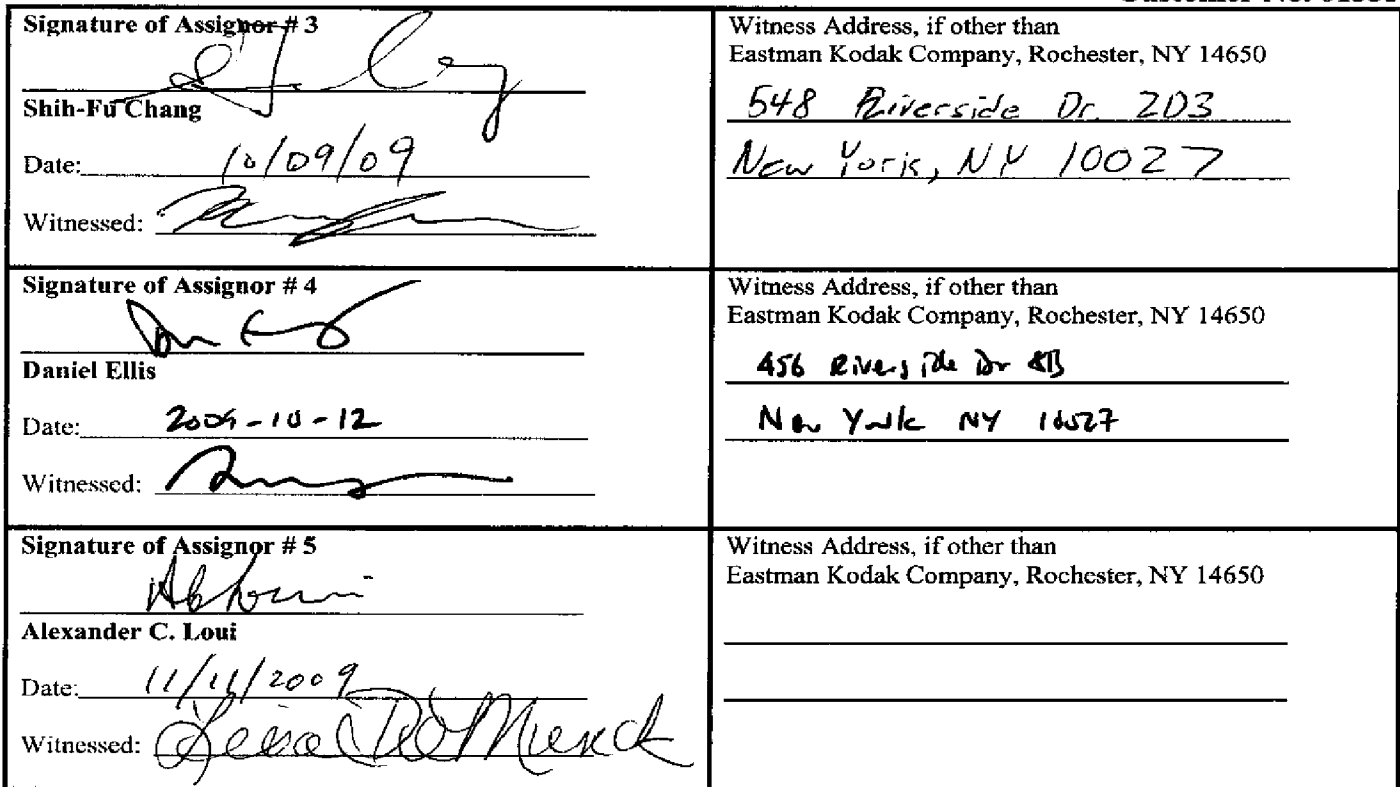 Signature of Assignor # 3
Shih-Fu Chang
Date: 10/09/09
Witnessed:
Witness Address, if other than
Eastman Kodak Company, Rochester, NY 14650
548 Riverside Dr. 2D3
New York, NY 10027
Signature of Assignor # 4
Daniel Ellis
Date: 2009-10-12
Witnessed:
Witness Address, if other than
Eastman Kodak Company, Rochester, NY 14650
456 Riverside Dr
New York NY 10027
Signature of Assignor # 5
Alexander C. Loui
Date: 11/11/2009
Witnessed:
Witness Address, if other than
Eastman Kodak Company, Rochester, NY 14650